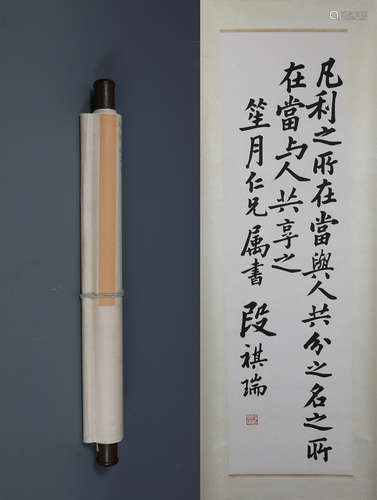 凡利之所在當與人共分之名之所
在當与人共享之
笙月仁兄属書 段祺瑞